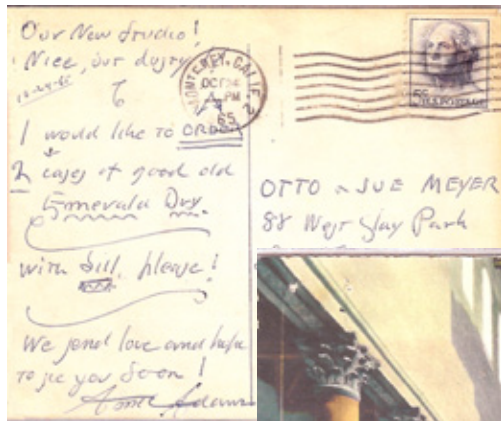 Our New Studio!
Nice, but dusty
10-24-65
I would like to ORDER
2 cases of good old
Emerald Dry
with bill, please!
We send love and hope
to see you soon!
Ansel Adams
MONTEREY, CALIF. 2
OCT 24
PM
65
5¢ U.S. POSTAGE
OTTO & SUE MEYER
88 West Clay Park